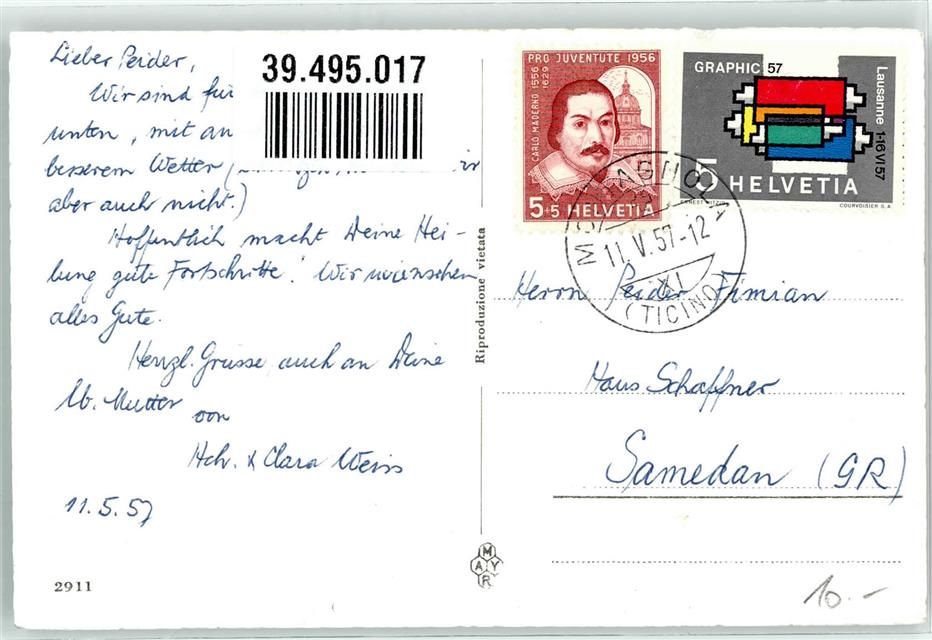 Lieber Peider,
39.495.017
Wir sind für
unten, mit an
besserem Wetter (
aber auch nicht.)
Hoffentlich macht Deine Hei-
lung gute Fortschritte! Wir wünschen
alles Gute.
Herzl. Grüsse auch an Deine
lb. Mutter von
Hch. & Clara Weiss
11.5.57
2911
Riproduzione vietata
MAYR
PRO JUVENTUTE 1956
CARLO MADERNO 1556 1629
5+5 HELVETIA
GRAPHIC 57
Lausanne 1-16 VI 57
5 HELVETIA
COURVOISIER S.A.
11.V.57-12
XI
(TICINO)
Herrn Peider Fimian
Haus Schaffner
Samedan (GR)
10.-